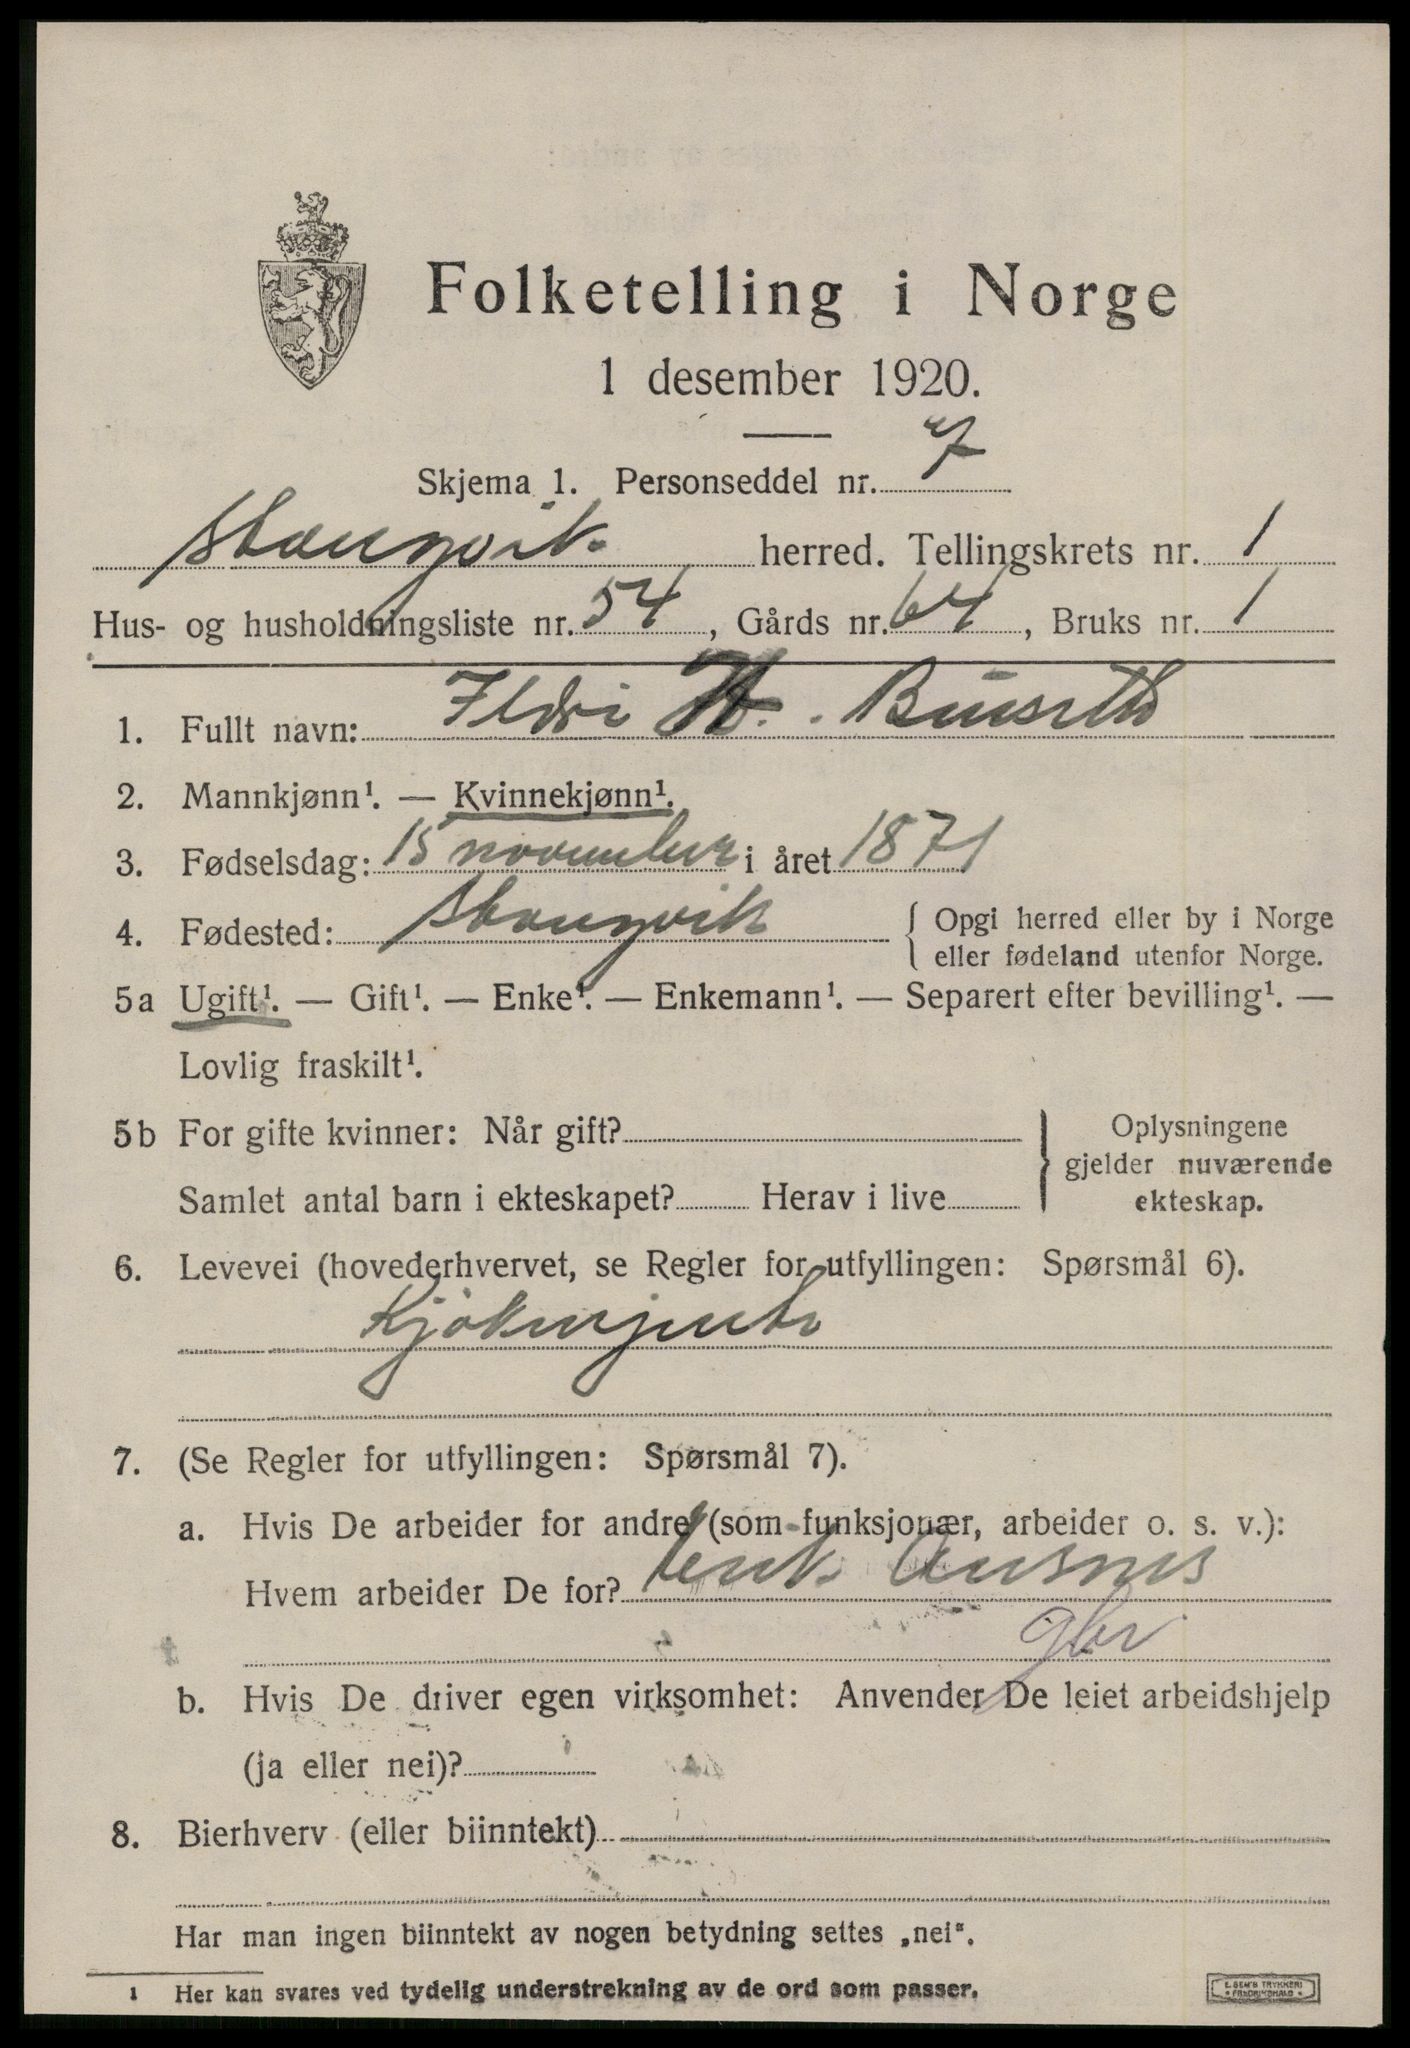 Folketelling i Norge
1 desember 1920.
Skjema 1. Personseddel nr. 7
Stangvik herred. Tellingskrets nr. 1
Hus- og husholdningsliste nr. 54, Gårds nr. 64, Bruks nr. 1
1. Fullt navn: Ildri H. Buseth
2. Mannkjønn¹. — Kvinnekjønn¹.
3. Fødselsdag: 15 november i året 1871
4. Fødested: Stangvik { Opgi herred eller by i Norge
eller fødeland utenfor Norge.
5a Ugift¹. — Gift¹. — Enke¹. — Enkemann¹. — Separert efter bevilling¹. —
Lovlig fraskilt¹.
5b For gifte kvinner: Når gift?
Samlet antal barn i ekteskapet? Herav i live
Oplysningene
gjelder nuværende
ekteskap.
6. Levevei (hovederhvervet, se Regler for utfyllingen: Spørsmål 6).
Kjøkenjente
7. (Se Regler for utfyllingen: Spørsmål 7).
a. Hvis De arbeider for andre (som funksjonær, arbeider o. s. v.):
Hvem arbeider De for? Ausnes
gbr
b. Hvis De driver egen virksomhet: Anvender De leiet arbeidshjelp
(ja eller nei)?
8. Bierhverv (eller biinntekt)
Har man ingen biinntekt av nogen betydning settes „nei“.
1 Her kan svares ved tydelig understrekning av de ord som passer.
E. SEM'S TRYKKERI
• FREDRIKSHALD •